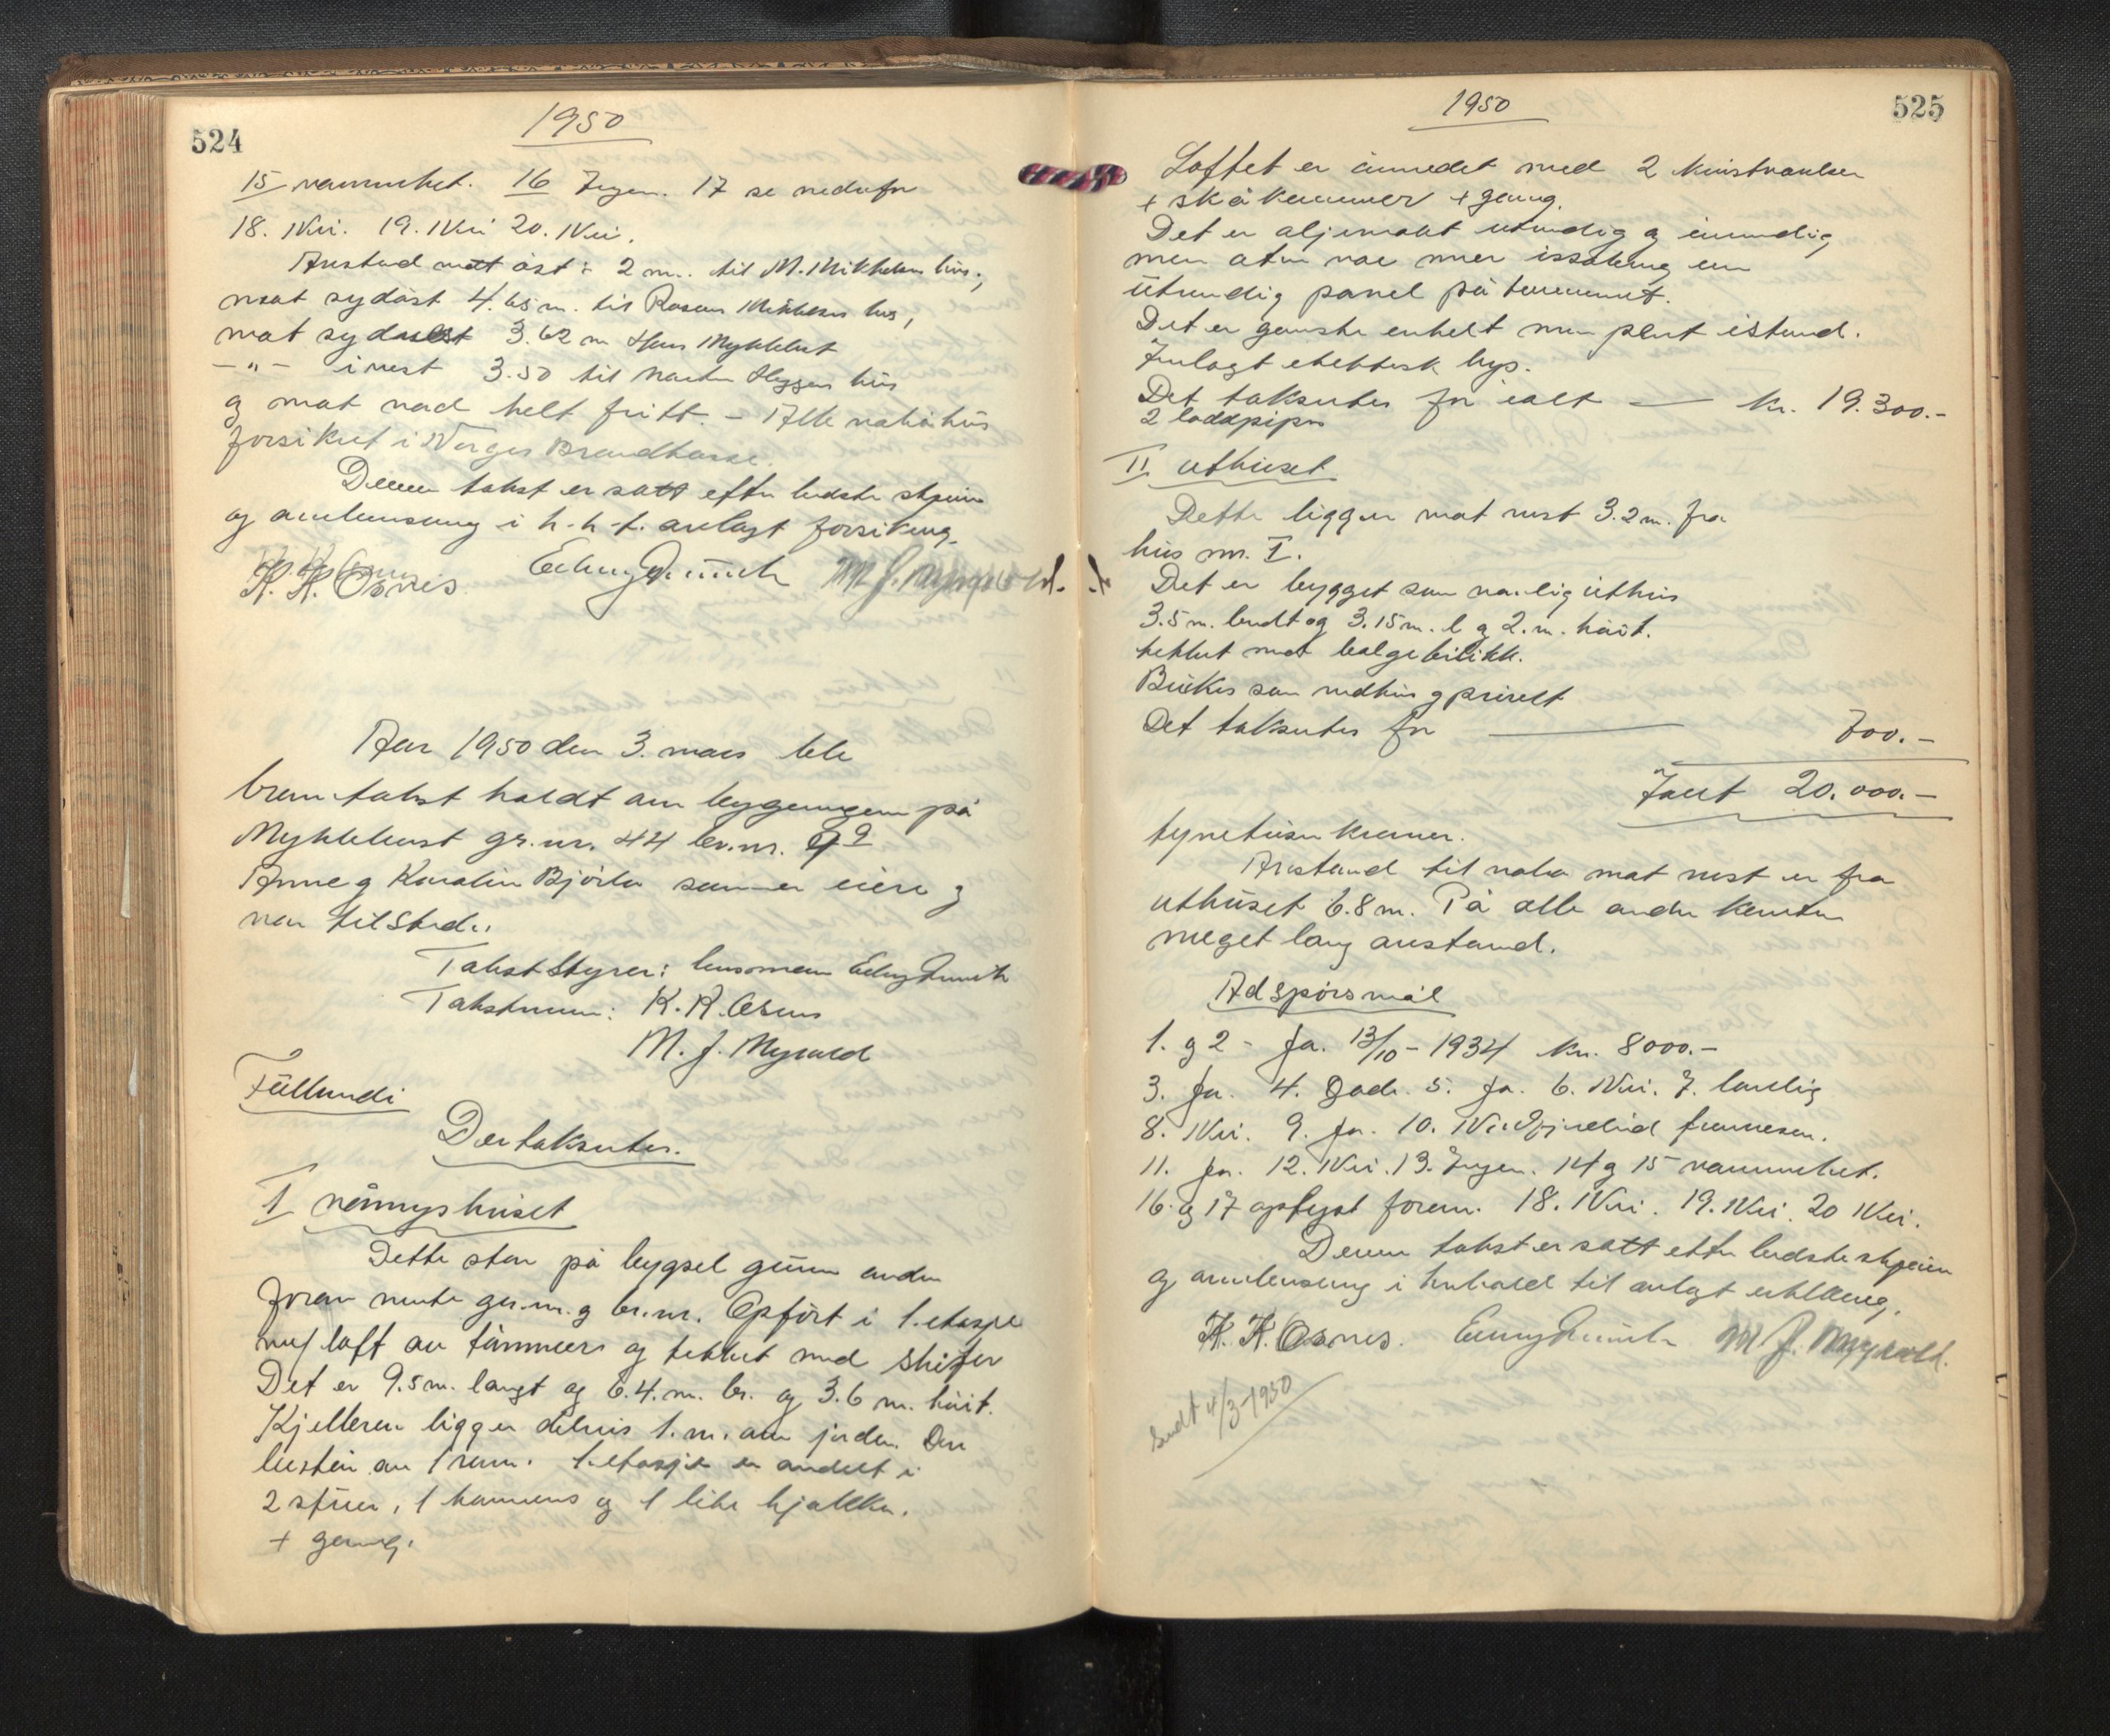 524
1950
15 rammuket. 16 Ingen. 17 se nedafor
18. Nei. 19. Nei 20. Nei.
Avstand mot öst: 2 m. til M. Mikkelsens hus,
mot sydöst 4.65 m. til Rasmus Mikkelsens hus,
mot sydvest 3.62 m Hans Myklebust
-"- i vest 3.50 til Heggen hus
og mot nord helt fritt. - Alle nabohus
forsikret i Norges Brandkasse.
Denne takst er satt efter bedste skjönn
og i h.h.t. avlagt forsikring.
K. K. Osnes M. J. Myrvold.
Aar 1950 den 3. mars ble
branntakst holdt over bygningen på
Myklebust gr.nr. 44 br.nr. 9
Anne og Karoline Björlo som er eiere og
var tilstede.
Takststyrer: lensmann
Takstmenn: K. K. Osnes
M. J. Myrvold
Fullmdi
Der takseres.
I våningshuset
Dette står på bygsel grunn under
foran nevnte gr.nr. og br.nr. Opfört i 1. etasje
m/ loft av tömmer og tekket med skifer
Det er 9.5 m. langt og 6.4. m. br. og 3.6 m. höit.
Kjelleren ligger delvis 1. m. over jorden. Den
består av 1 rum. 1. etasje er avdelt i
2 stuer, 1 kammers og 1 lite kjökken.
+ gang.
1950
525
Loftet er innredet med 2 kvistværelser
+ skåkammer + gang.
Det er oljemalt utvendig og innvendig
men uten noe mer isolering enn
utvendig panel på tömmeret.
Det er ganske enkelt men pent istand.
Innlagt elektrisk lys.
Det takseres for ialt — kr. 19.300.-
2 loddpiper
II uthuset
Dette ligger mot vest 3.2 m. fra
hus nr. I.
Det er bygget som vanlig uthus
3.5 m. bredt og 3.15 m. l og 2. m. höit.
tekket med bølgeblikk.
Brukes som vedhus og privet
Det takseres for — 700.-
Ialt 20.000.-
tyvetusen kroner.
Avstand til nabo mot vest er fra
uthuset 6.8 m. På alle andre kanter
meget lang avstand.
Ad spörsmål
1. og 2 - Ja. 13/10 - 1934 kr. 8000.-
3. Ja. 4. Gode. 5. Ja. 6. Nei. 7. landlig
8. Nei. 9. Ja. 10. Nei
11. Ja. 12. Nei. 13. Ingen. 14 og 15 rammuket.
16. og 17 oplyst foran. 18. Nei. 19. Nei. 20 Nei.
Denne takst er satt etter bedste skjönn
og i henhold til avlagt erklæring.
K. K. Osnes. M. J. Myrvold.
Sendt 4/3-1950